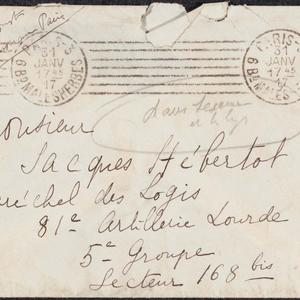 PARIS
31
JANV
17 45
17
6 Bd MALESHERBES
PARIS
31
JANV
17 45
17
6 Bd MALESHERBES
onsieur
Jacques Hébertot
aréchel des Logis
81e Artillerie Lourde
5e Groupe
Secteur 168 bis